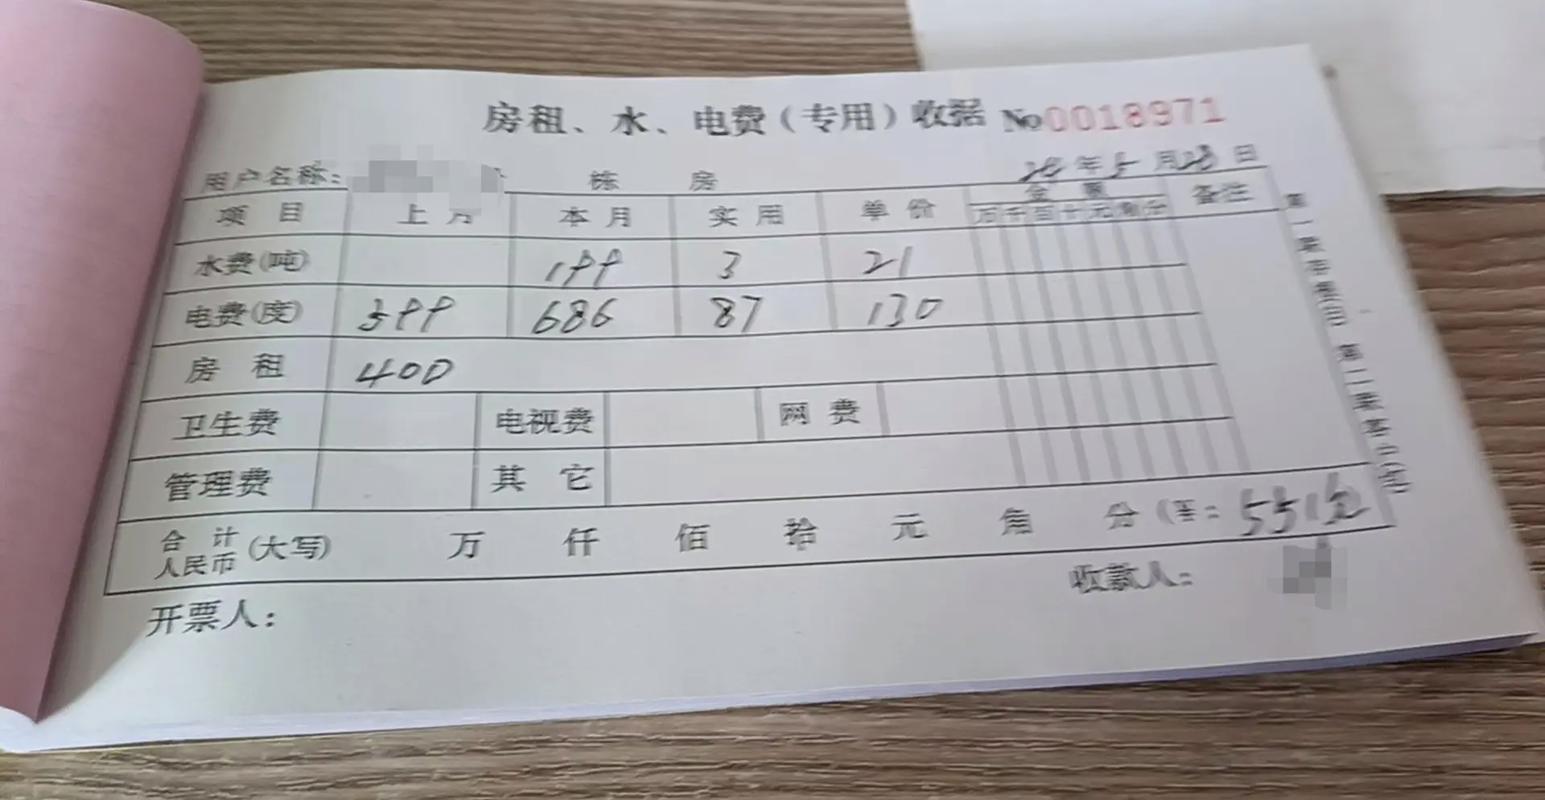 房租、水、电费（专用）收据 No0018971
用户名称： 栋 房 年5月28日
项目 上月 本月 实用 单价 金额 备注
万千百十元角分
水费(吨) 199 3 21
电费(度) 599 686 87 130
房租 400
卫生费 电视费 网费
管理费 其它
合计人民币(大写) 万 仟 佰 拾 元 角 分(¥: 551元
开票人： 收款人：
第一联存根白 第二联客户(红)